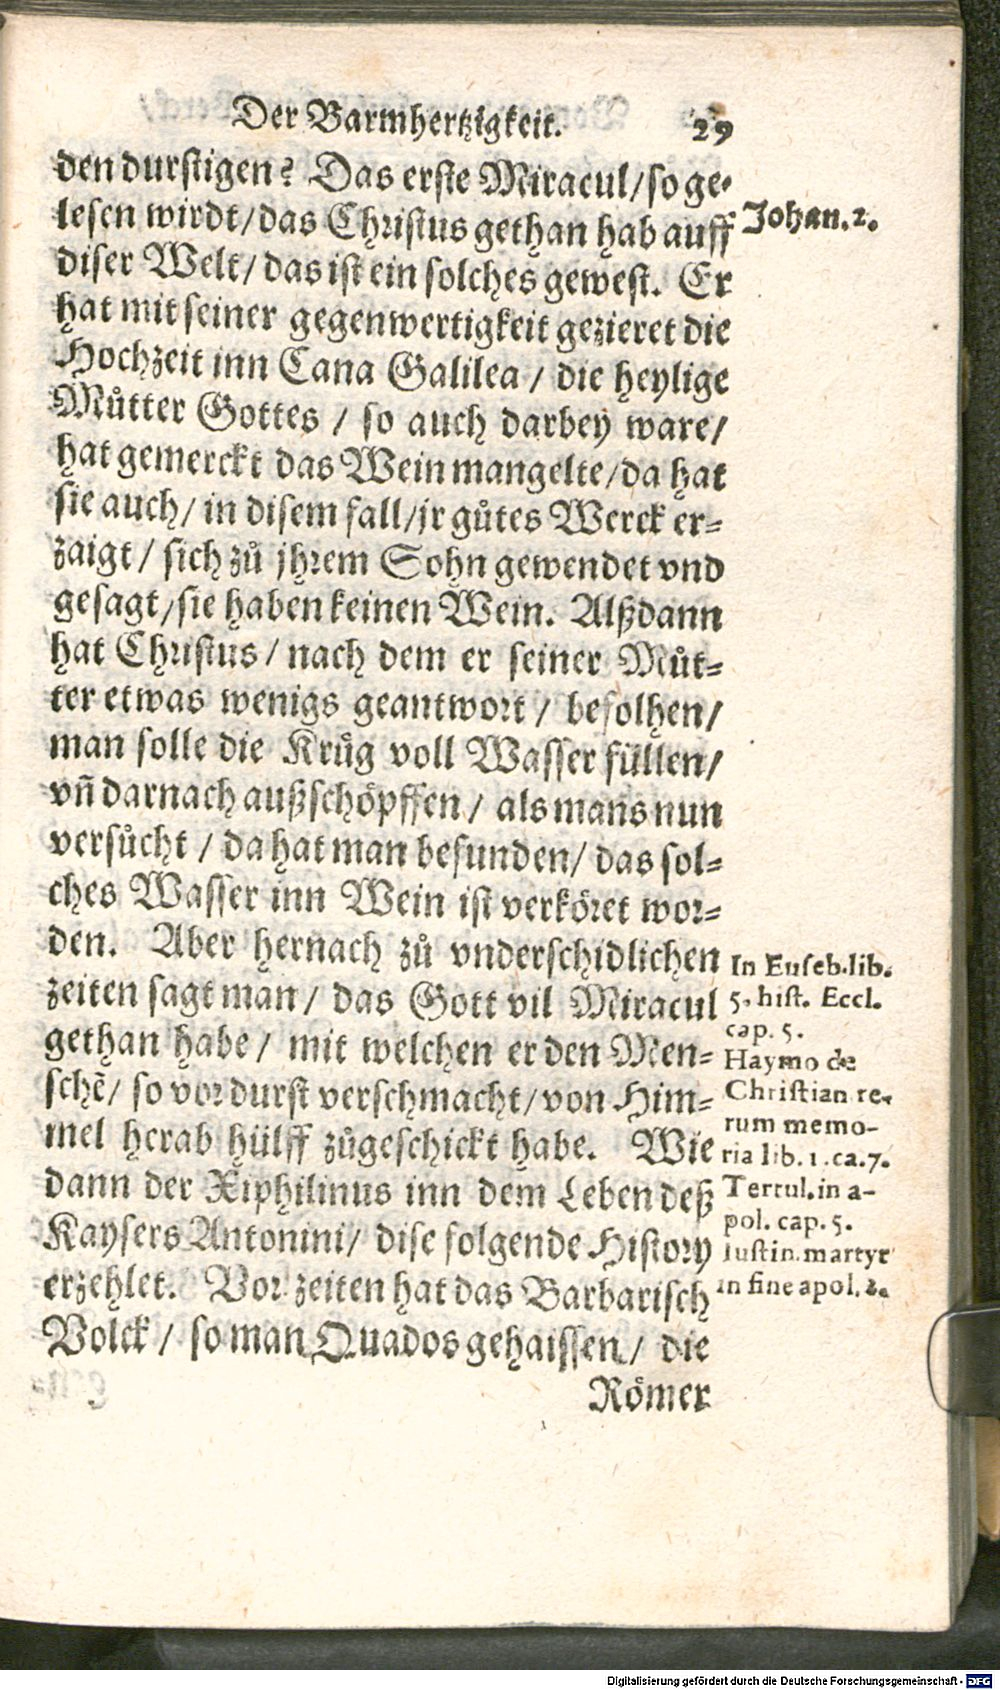 Der Barmhertzigkeit. 29
den durstigen? Das erste Miracul/so ge-
lesen wirdt/das Christus gethan hab auff
Johan. 2.
diser Welt/das ist ein solches gewest. Er
hat mit seiner gegenwertigkeit gezieret die
Hochzeit inn Cana Galilea / die heylige
Můtter Gottes / so auch darbey ware/
hat gemerckt das Wein mangelte/da hat
sie auch/ in disem fall/jr gůtes Werck er-
zaigt / sich zů jhrem Sohn gewendet vnd
gesagt/sie haben keinen Wein. Alßdann
hat Christus / nach dem er seiner Můt-
ter etwas wenigs geantwort / befolhen/
man solle die Krůg voll Wasser füllen/
vñ darnach außschöpffen / als mans nun
versůcht / da hat man befunden/ das sol-
ches Wasser inn Wein ist verköret wor-
den. Aber hernach zů vnderschidlichen
zeiten sagt man/ das Gott vil Miracul
gethan habe / mit welchen er den Men-
schē/ so vor durst verschmacht/von Him-
mel herab hülff zůgeschickt habe. Wie
dann der Xiphilinus inn dem Leben deß
Kaysers Antonini/ dise folgende History
erzehlet. Vor zeiten hat das Barbarisch
Volck / so man Quados gehaissen / die
Römer
In Euseb.lib.
5. hist. Eccl.
cap. 5.
Haymo de
Christian re-
rum memo-
ria lib. 1. ca. 7.
Tertul. in a-
pol. cap. 5.
Iustin. martyr
in fine apol. 2.
Digitalisierung gefördert durch die Deutsche Forschungsgemeinschaft - DFG